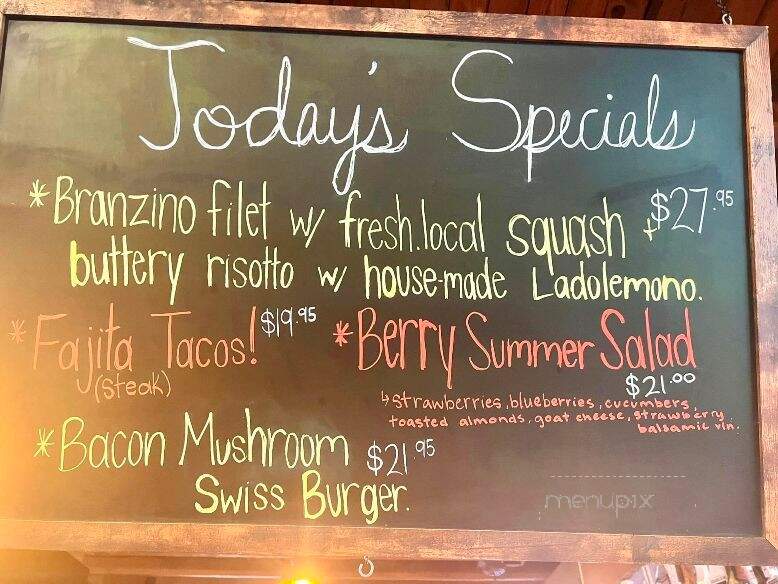 Today's Specials
*Branzino filet w/ fresh.local squash + $27.95
buttery risotto w/ house-made Ladolemono.
*Fajita Tacos! $19.95
(steak)
*Berry Summer Salad
$21.00
↳strawberries, blueberries, cucumbers,
toasted almonds, goat cheese, strawberry
balsamic vin.
*Bacon Mushroom $21.95
Swiss Burger.
menupix